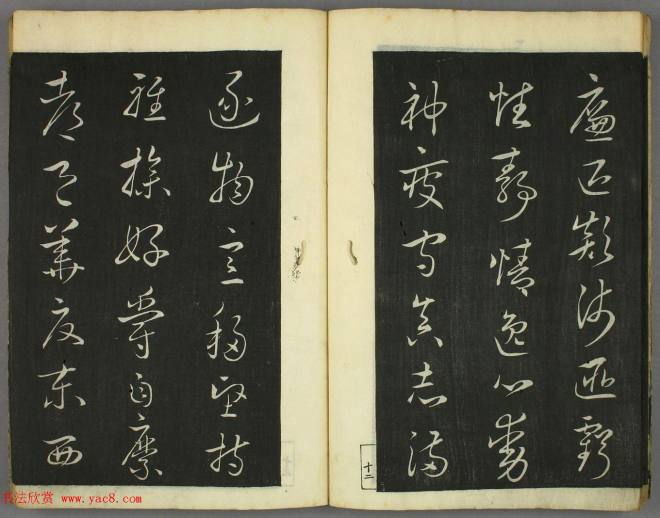 廉退顛沛匪虧
性靜情逸心動
神疲守真志滿
十二
逐物意移堅持
雅操好爵自縻
都邑華夏東西
书法欣赏 www.yac8.com